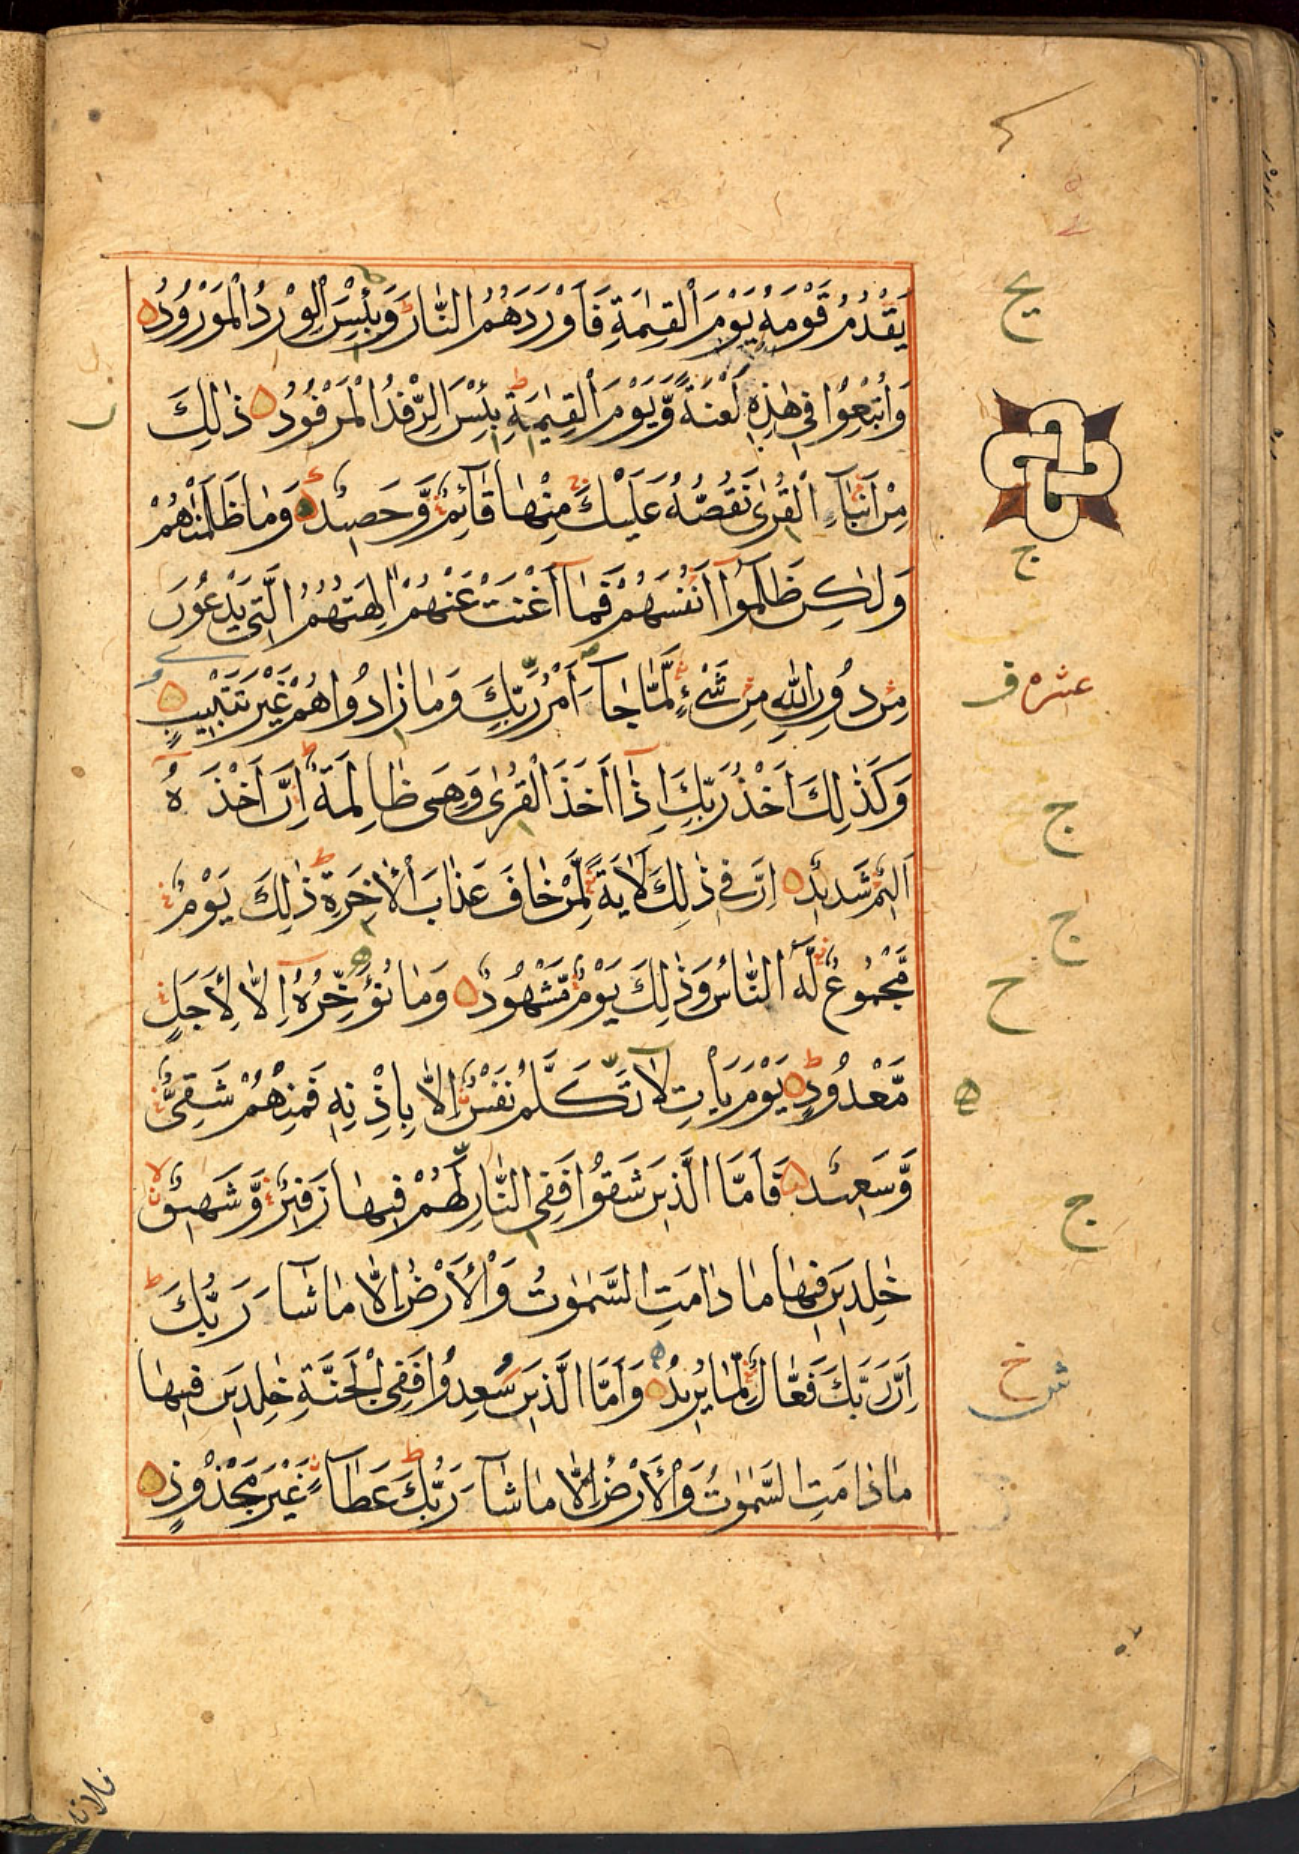 يَقْدُمُ قَوْمَهٗ يَوْمَ الْقِيٰمَةِ فَاَوْرَدَهُمُ النَّارَ ط وَبِئْسَ الْوِرْدُ الْمَوْرُوْدُ
وَاُتْبِعُوْا فِيْ هٰذِهٖ لَعْنَةً وَّيَوْمَ الْقِيٰمَةِ ط بِئْسَ الرِّفْدُ الْمَرْفُوْدُ ذٰلِكَ
مِنْ اَنْبَآءِ الْقُرٰى نَقُصُّهٗ عَلَيْكَ مِنْهَا قَآئِمٌ وَّحَصِيْدٌ وَمَا ظَلَمْنٰهُمْ
وَلٰكِنْ ظَلَمُوْٓا اَنْفُسَهُمْ فَمَآ اَغْنَتْ عَنْهُمْ اٰلِهَتُهُمُ الَّتِيْ يَدْعُوْنَ
مِنْ دُوْنِ اللّٰهِ مِنْ شَيْءٍ لَّمَّا جَآءَ اَمْرُ رَبِّكَ وَمَا زَادُوْاهُمْ غَيْرَ تَتْبِيْبٍ
وَكَذٰلِكَ اَخْذُ رَبِّكَ اِذَآ اَخَذَ الْقُرٰى وَهِيَ ظَالِمَةٌ ط اِنَّ اَخْذَهٗٓ
اَلِيْمٌ شَدِيْدٌ اِنَّ فِيْ ذٰلِكَ لَاٰيَةً لِّمَنْ خَافَ عَذَابَ الْاٰخِرَةِ ط ذٰلِكَ يَوْمٌ
مَّجْمُوْعٌ لَّهُ النَّاسُ وَذٰلِكَ يَوْمٌ مَّشْهُوْدٌ وَمَا نُؤَخِّرُهٗٓ اِلَّا لِاَجَلٍ
مَّعْدُوْدٍ ط يَوْمَ يَاْتِ لَا تَكَلَّمُ نَفْسٌ اِلَّا بِاِذْنِهٖ فَمِنْهُمْ شَقِيٌّ
وَّسَعِيْدٌ فَاَمَّا الَّذِيْنَ شَقُوْا فَفِي النَّارِ لَهُمْ فِيْهَا زَفِيْرٌ وَّشَهِيْقٌ لا
خٰلِدِيْنَ فِيْهَا مَا دَامَتِ السَّمٰوٰتُ وَالْاَرْضُ اِلَّا مَا شَآءَ رَبُّكَ ط
اِنَّ رَبَّكَ فَعَّالٌ لِّمَا يُرِيْدُ وَاَمَّا الَّذِيْنَ سُعِدُوْا فَفِي الْجَنَّةِ خٰلِدِيْنَ فِيْهَا
مَا دَامَتِ السَّمٰوٰتُ وَالْاَرْضُ اِلَّا مَا شَآءَ رَبُّكَ ط عَطَآءً غَيْرَ مَجْذُوْذٍ
ج
عشره
ج
ج
ح
ج